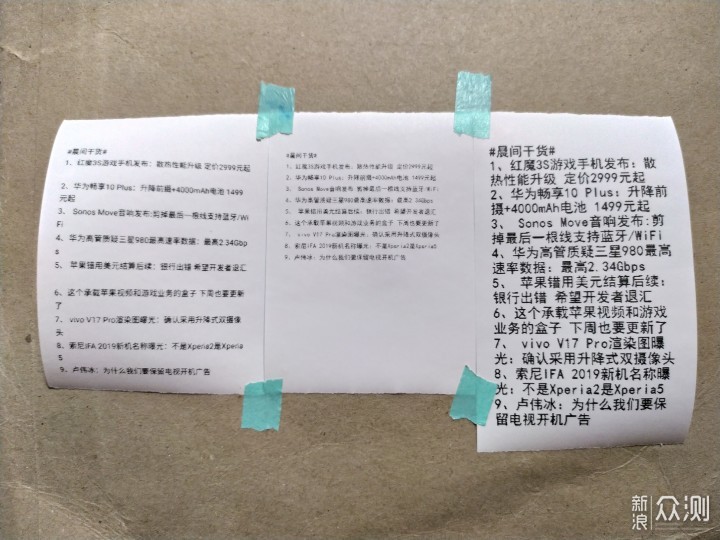 #晨间干货#
1、红魔3S游戏手机发布：散热性能升级 定价2999元起
2、华为畅享10 Plus：升降前摄+4000mAh电池 1499
元起
3、 Sonos Move音响发布:剪掉最后一根线支持蓝牙/Wi
Fi
4、华为高管质疑三星980最高速率数据：最高2.34Gbp
s
5、 苹果错用美元结算后续：银行出错 希望开发者退汇
6、这个承载苹果视频和游戏业务的盒子 下周也要更新
了
7、 vivo V17 Pro渲染图曝光：确认采用升降式双摄像
头
8、索尼IFA 2019新机名称曝光：不是Xperia2是Xperia
5
9、卢伟冰：为什么我们要保留电视开机广告
#晨间干货#
1、红魔3S游戏手机发布：散热性能升级 定价2999元起
2、华为畅享10 Plus：升降前摄+4000mAh电池 1499元起
3、 Sonos Move音响发布:剪掉最后一根线支持蓝牙/WiFi
4、华为高管质疑三星980最高速率数据：最高2.34Gbps
5、 苹果错用美元结算后续：银行出错 希望开发者退汇
6、这个承载苹果视频和游戏业务的盒子 下周也要更新了
7、 vivo V17 Pro渲染图曝光：确认采用升降式双摄像头
8、索尼IFA 2019新机名称曝光：不是Xperia2是Xperia5
9、卢伟冰：为什么我们要保留电视开机广告
#晨间干货#
1、红魔3S游戏手机发布：散
热性能升级 定价2999元起
2、华为畅享10 Plus：升降前
摄+4000mAh电池 1499元起
3、 Sonos Move音响发布:剪
掉最后一根线支持蓝牙/WiFi
4、华为高管质疑三星980最高
速率数据：最高2.34Gbps
5、 苹果错用美元结算后续：
银行出错 希望开发者退汇
6、这个承载苹果视频和游戏
业务的盒子 下周也要更新了
7、 vivo V17 Pro渲染图曝
光：确认采用升降式双摄像头
8、索尼IFA 2019新机名称曝
光：不是Xperia2是Xperia5
9、卢伟冰：为什么我们要保
留电视开机广告
新浪众测